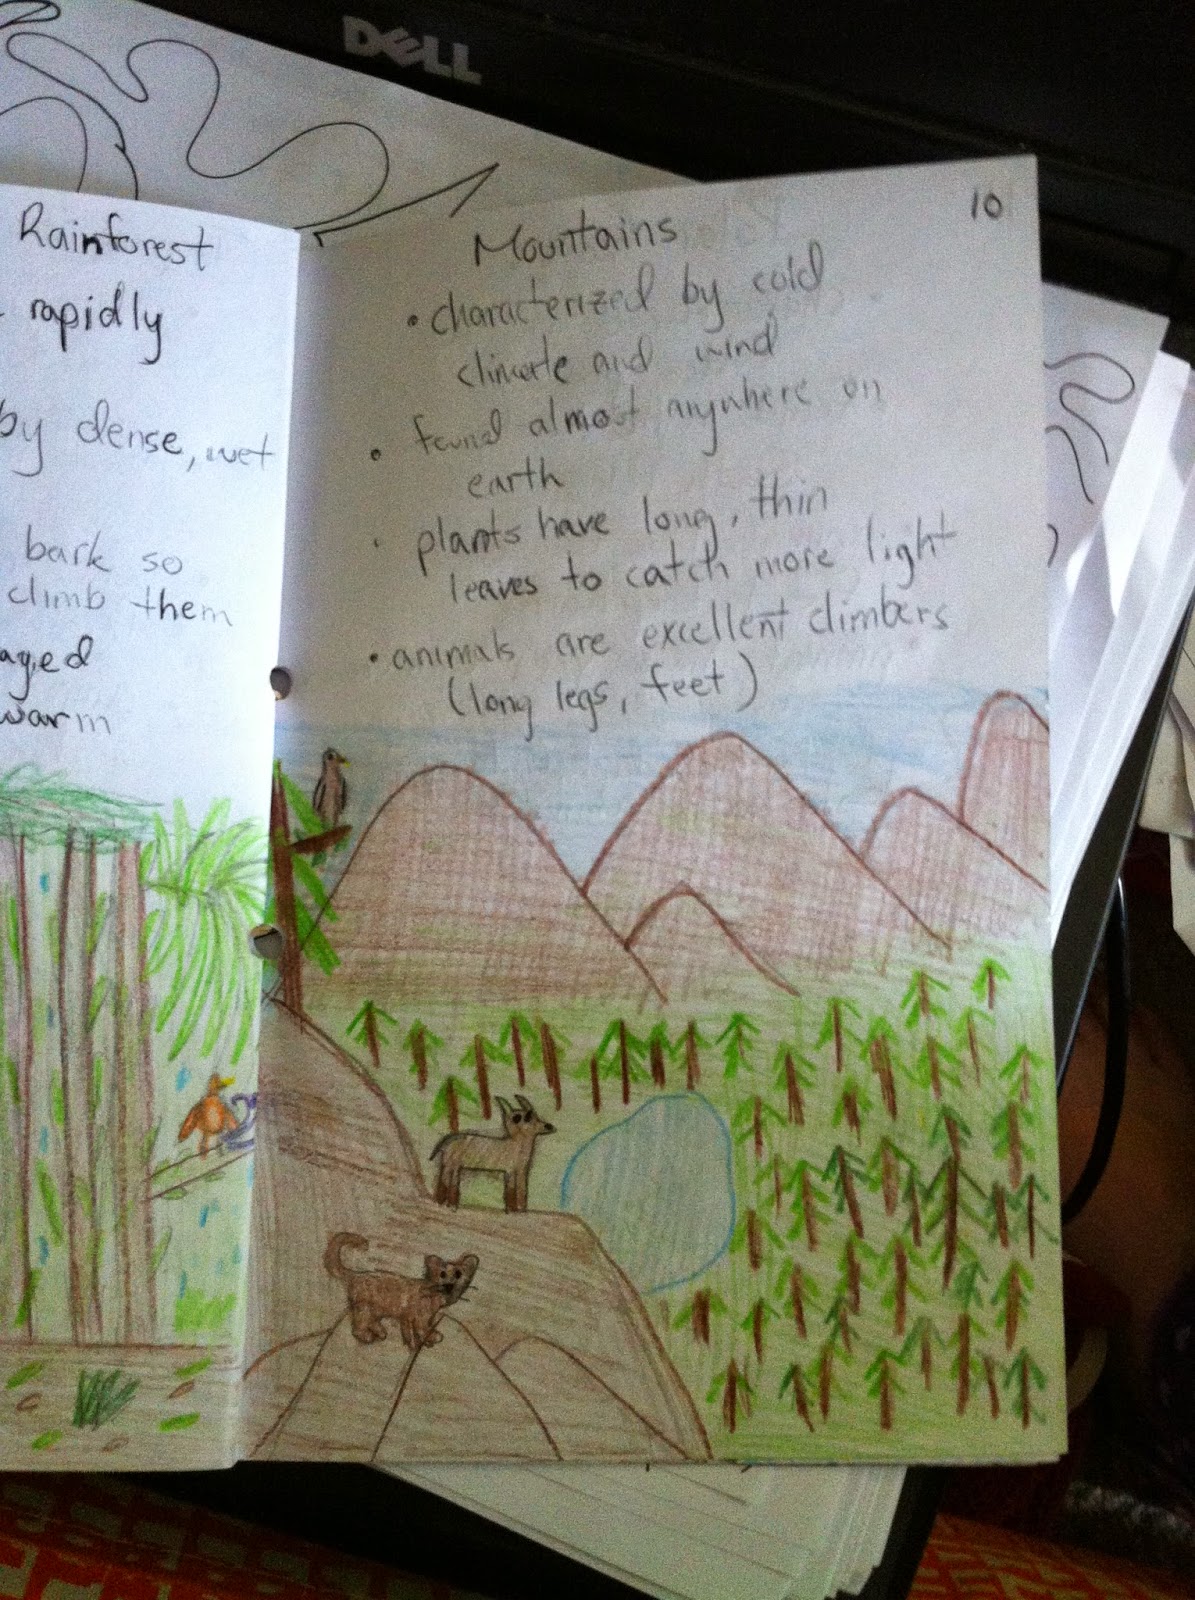 DELL
Rainforest
rapidly
by dense, wet
bark so
climb them
aged
warm
10
Mountains
• characterized by cold
climate and wind
• found almost anywhere on
earth
• plants have long, thin
leaves to catch more light
• animals are excellent climbers
(long legs, feet)